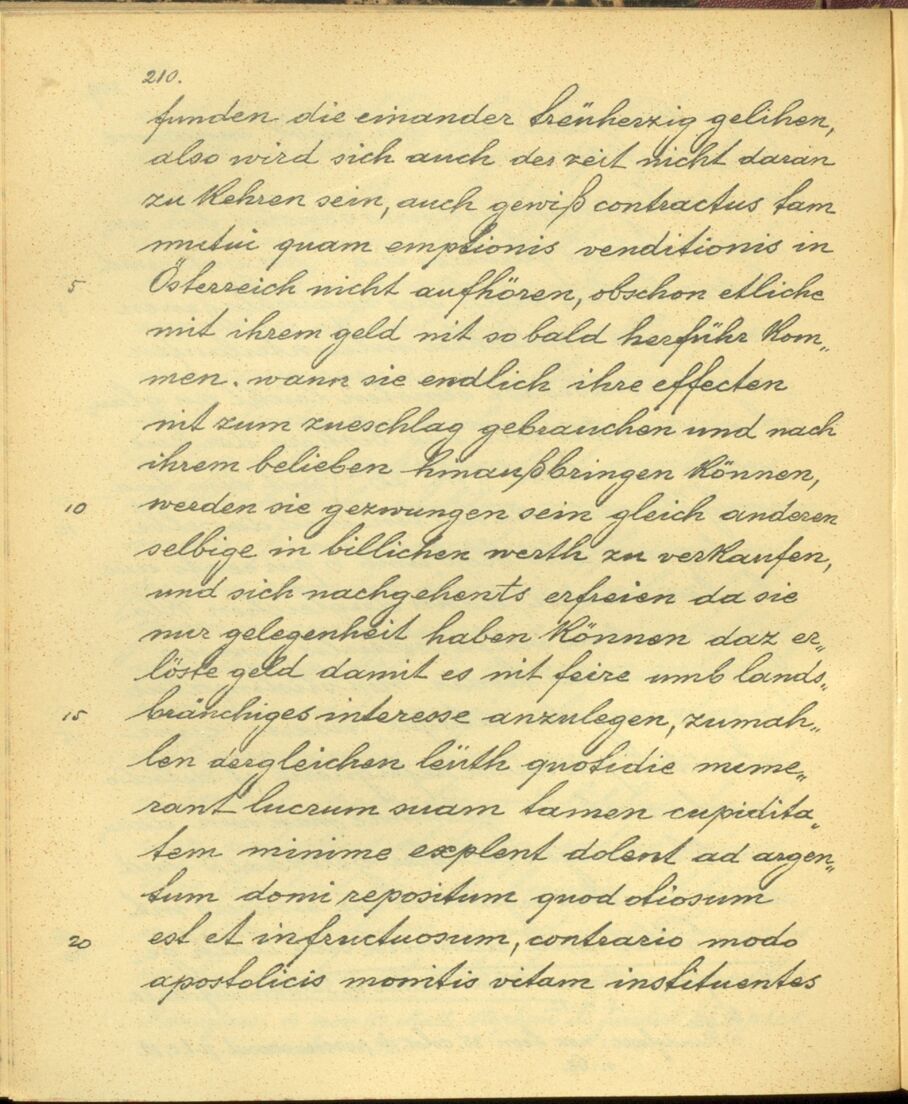 210.
funden die einander treüherzig gelihen,
also wird sich auch der zeit nicht daran
zu kehren sein, auch gewiß contractus tam
mutui quam emptionis venditionis in
5 Österreich nicht aufhören, obschon etliche
mit ihrem geld nit so bald herführ kom„
men. wann sie endlich ihre effecten
nit zum zueschlag gebrauchen und nach
ihrem belieben hinaußbringen können,
10 werden sie gezwungen sein gleich anderen
selbige in billichen werth zu verkaufen,
und sich nachgehents erfreien da sie
nur gelegenheit haben können daz er„
löste geld damit es nit feire umb lands„
15 bräuchiges interesse anzulegen, zumah„
len dergleichen leüth quotidie nume„
rant lucrum suam tamen cupidita„
tem minime explent dolent ad argen„
tum domi repositum quod otiosum
20 est et infructuosum, contrario modo
apostolicis monitis vitam instituentes